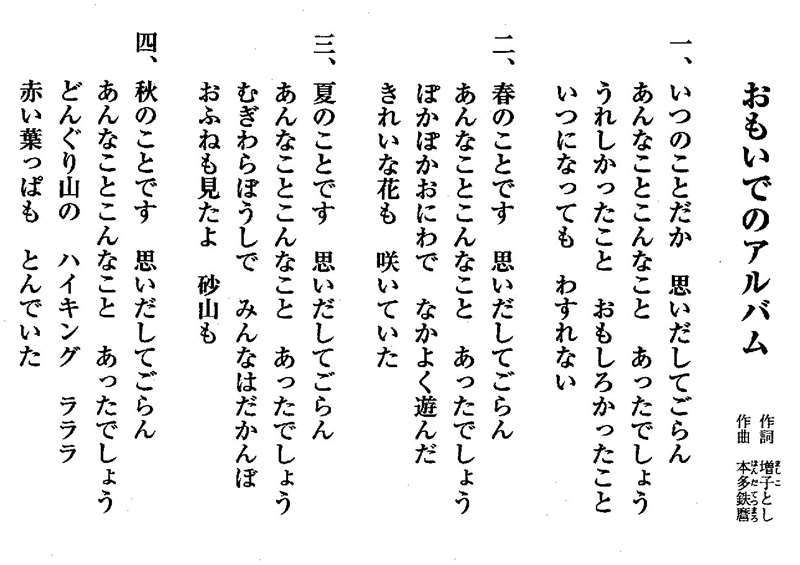 おもいでのアルバム
作詞 増子とし
ましこ
作曲 本多鉄麿
ほんだてつまろ
一、いつのことだか 思いだしてごらん
あんなことこんなこと あったでしょう
うれしかったこと おもしろかったこと
いつになっても わすれない
二、春のことです 思いだしてごらん
あんなことこんなこと あったでしょう
ぽかぽかおにわで なかよく遊んだ
きれいな花も 咲いていた
三、夏のことです 思いだしてごらん
あんなことこんなこと あったでしょう
むぎわらぼうしで みんなはだかんぼ
おふねも見たよ 砂山も
四、秋のことです 思いだしてごらん
あんなことこんなこと あったでしょう
どんぐり山の ハイキング ラララ
赤い葉っぱも とんでいた